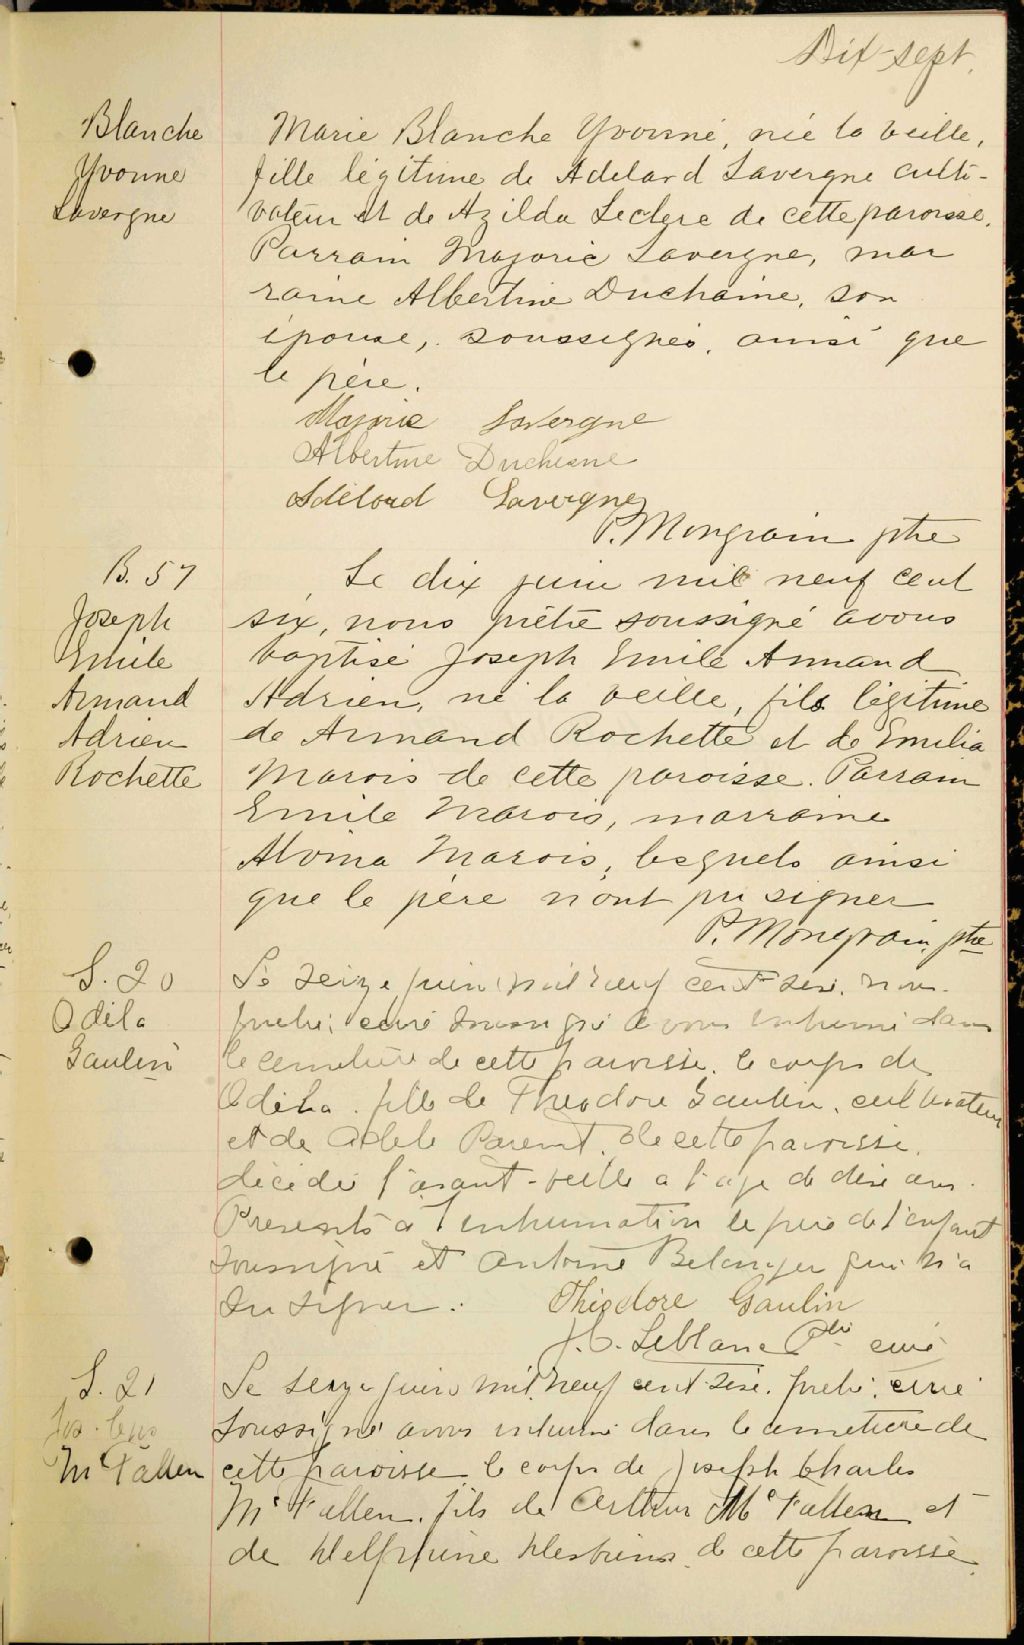 Dix-sept.
Blanche
Yvonne
Lavergne
Marie Blanche Yvonne, née la veille,
fille légitime de Adelard Lavergne culti-
vateur et de Azilda Leclerc de cette paroisse.
Parrain Majoric Lavergne, mar
raine Albertine Duchaine, son
épouse, soussignés, ainsi que
le père.
Majoric Lavergne
Albertine Duchesne
Adélard Lavergne
P. Mongrain ptre
B. 57
Joseph
Emile
Armand
Adrien
Rochette
Le dix juin mil neuf cent
six, nous prêtre soussigné avons
baptisé Joseph Emile Armand
Adrien, né la veille, fils légitime
de Armand Rochette et de Emilia
Marois de cette paroisse. Parrain
Emile Marois, marraine
Alvina Marois, lesquels ainsi
que le père n'ont pu signer
P. Mongrain, ptre
S. 20
Odila
Gaulin
Le seize juin mil neuf cent six, nous
prêtre, curé soussigné avons inhumé dans
le cimetière de cette paroisse, le corps de
Odila, fille de Théodore Gaulin, cultivateur
et de Adele Parent, de cette paroisse,
décédée l'avant-veille a l'age de dix ans.
Presents à l'inhumation le père de l'enfant
soussigné et Antoine Belanger qui n'a
su signer.
Théodore Gaulin
Leblanc Ptre curé
S. 21
Jos.
McFallen
Le seize juin mil neuf cent six, prêtre, curé
soussigné avons inhumé dans le cimetière de
cette paroisse le corps de Joseph Charles
McFallen, fils de Arthur McFallen et
de Delphine de cette paroisse